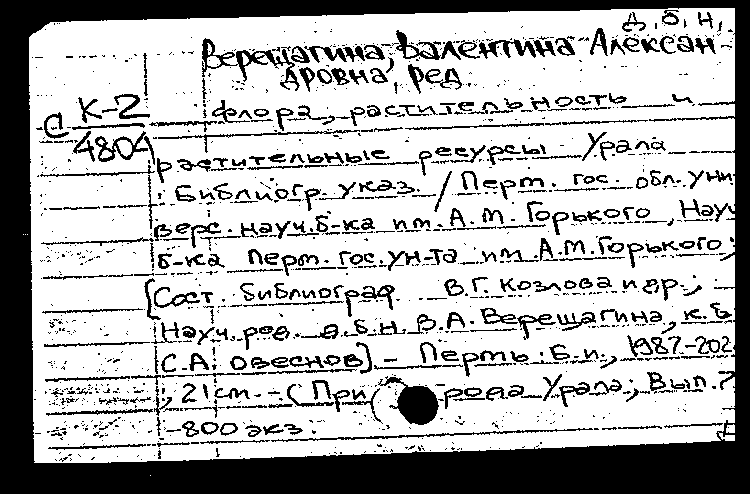 д.б.н,
Верещагина, Валентина Алексан-
дровна, ред.
С К-2
4804
Флора, растительность и
растительные ресурсы Урала
: Библиогр. указ. / Перм. гос. обл. уни
верс. науч. б-ка им. А.М. Горького, Науч
б-ка Перм. гос. ун-та им. А.М. Горького;
[Сост. библиограф В.Г. Козлова и др.;
Науч. ред. д.б.н. В.А. Верещагина, к.б
С.А. Овеснов] – Пермь: Б.и., 1987-202
, 21 см. – (Природа Урала; Вып. 7
-800 экз.